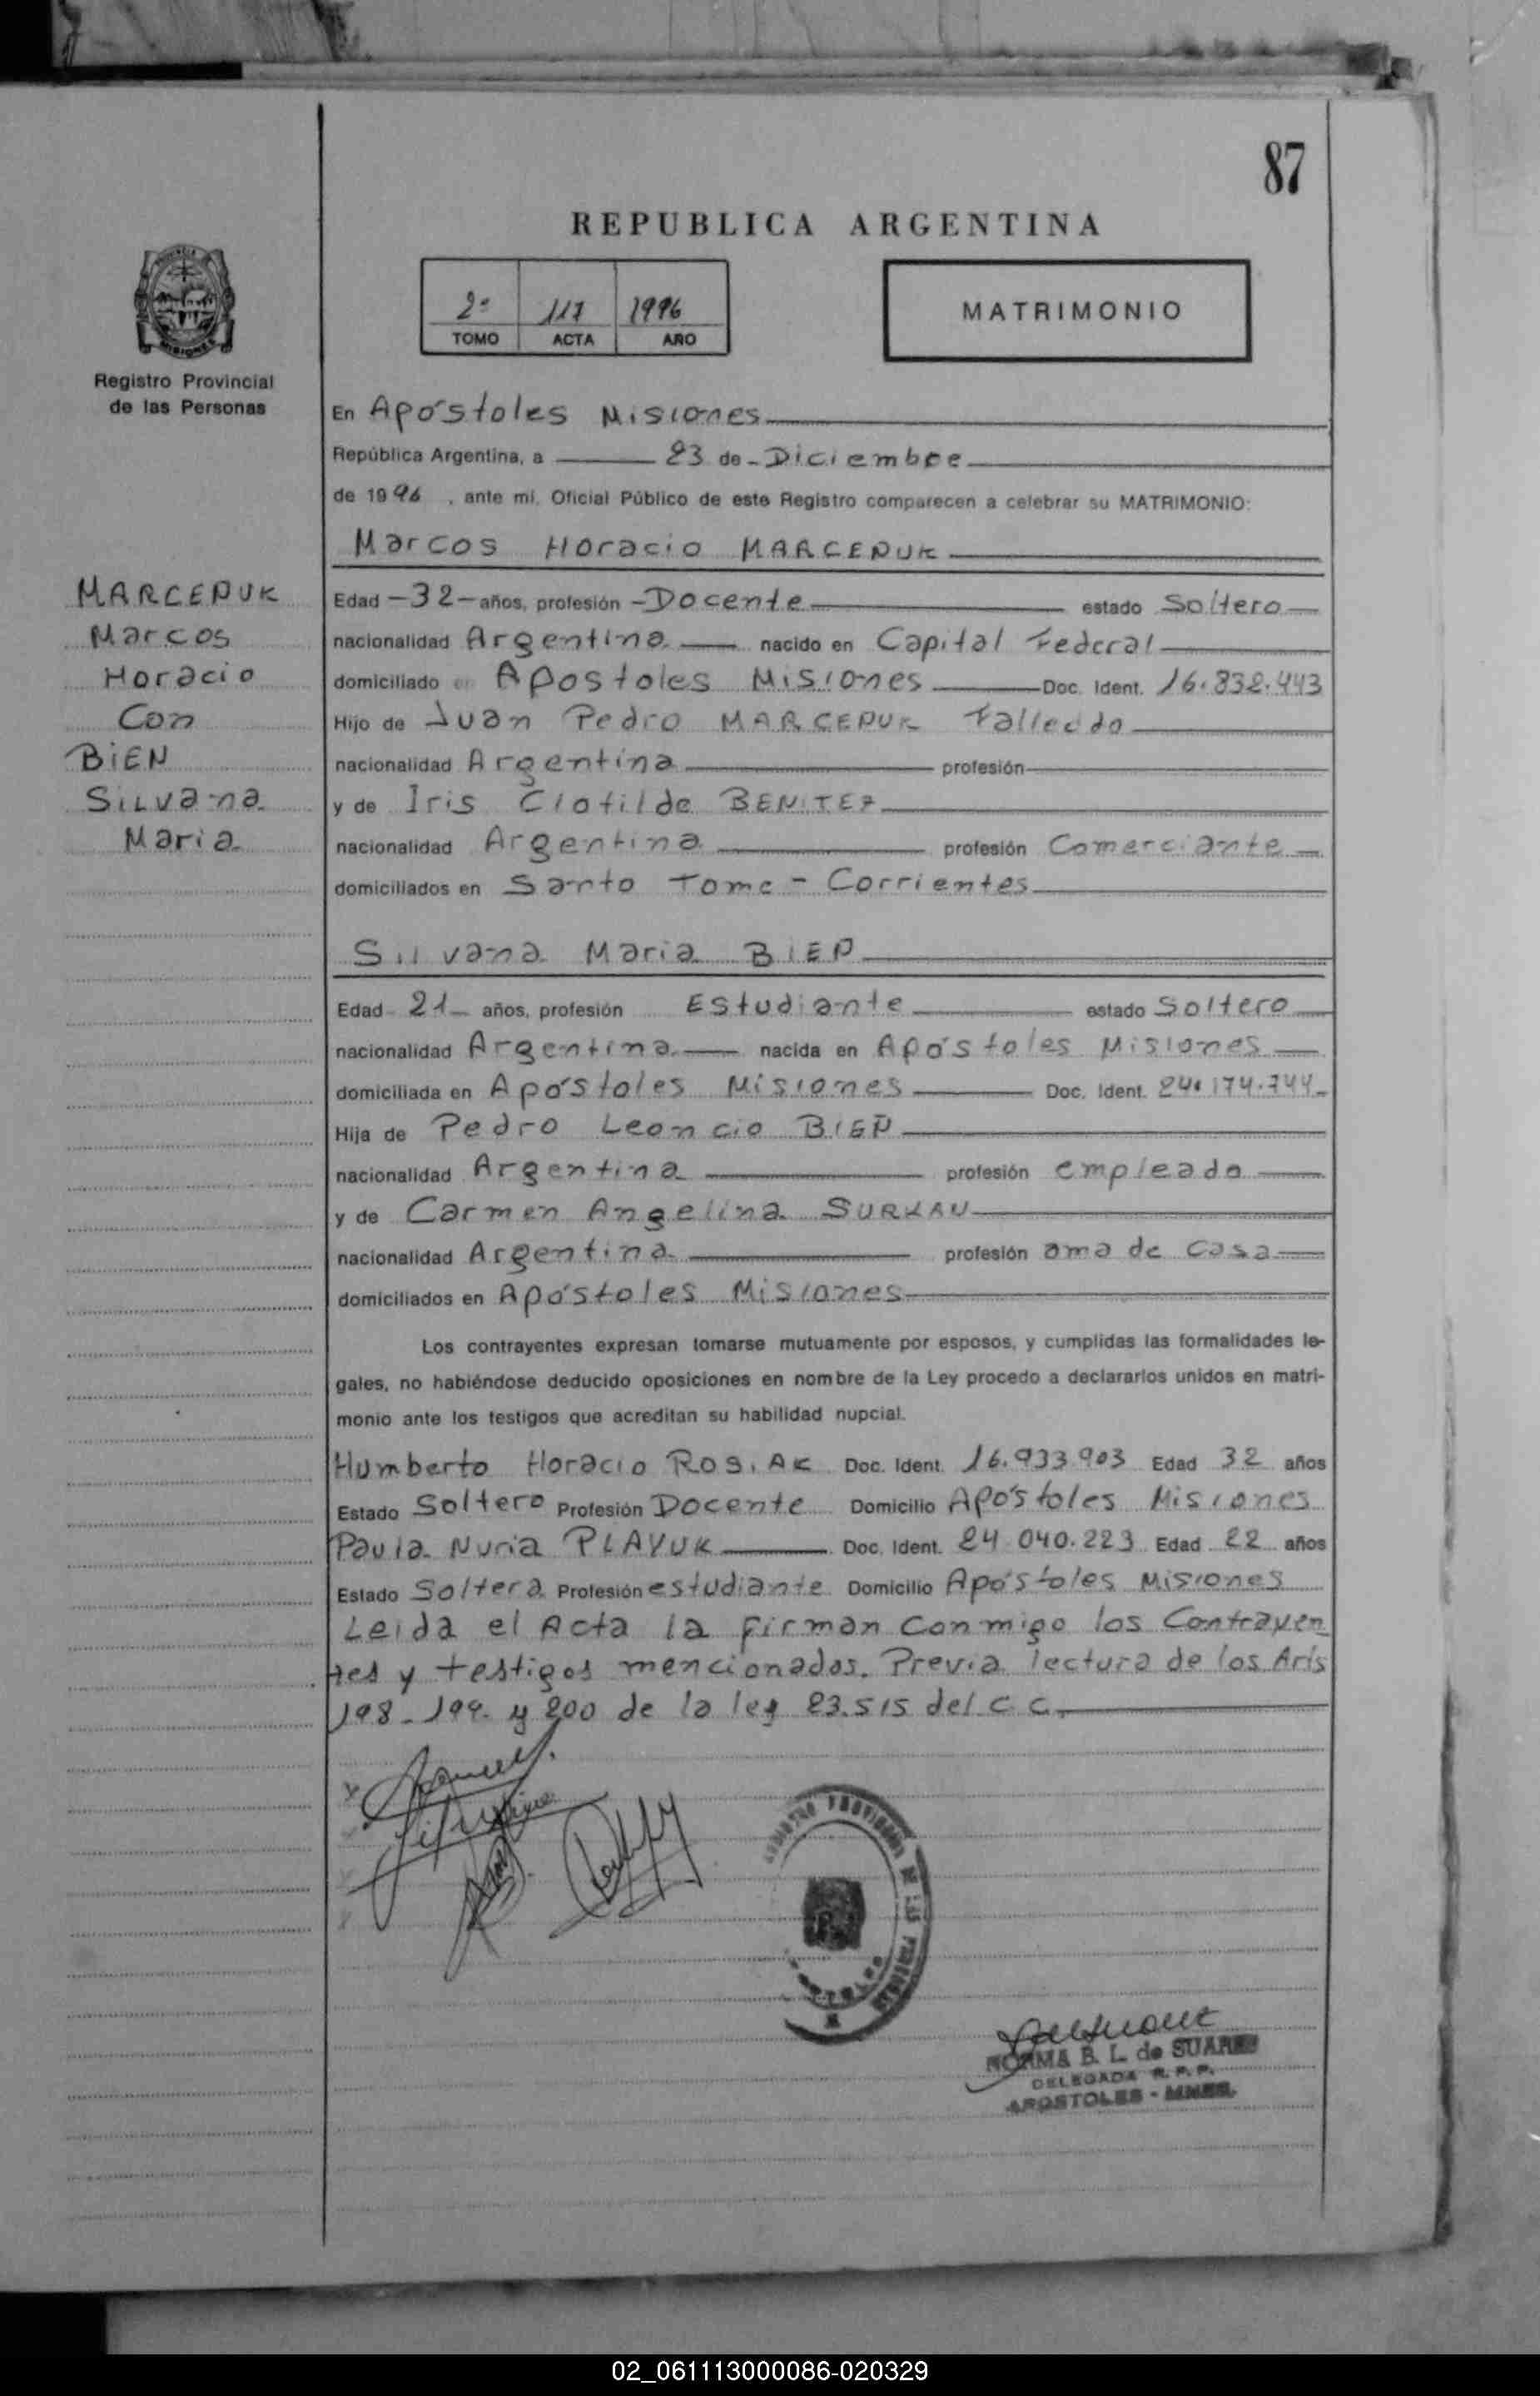 87
REPUBLICA ARGENTINA
2º 117 1996
TOMO ACTA AÑO
MATRIMONIO
Registro Provincial
de las Personas
En Apóstoles Misiones
República Argentina, a 23 de Diciembre
de 1996, ante mí, Oficial Público de este Registro comparecen a celebrar su MATRIMONIO:
Marcos Horacio MARCENUK
MARCENUK
Marcos
Horacio
Con
BIEN
Silvana
Maria
Edad -32- años, profesión -Docente estado Soltero
nacionalidad Argentina nacido en Capital Federal
domiciliado en Apostoles Misiones Doc. Ident. 16.832.443
Hijo de Juan Pedro MARCENUK Fallecido
nacionalidad Argentina profesión
y de Iris Clotilde BENITEZ
nacionalidad Argentina profesión Comerciante
domiciliados en Santo Tome - Corrientes
Silvana Maria BIEN
Edad 21 años, profesión Estudiante estado Soltero
nacionalidad Argentina nacida en Apóstoles Misiones
domiciliada en Apóstoles Misiones Doc. Ident. 24.174.744
Hija de Pedro Leoncio BIEN
nacionalidad Argentina profesión empleado
y de Carmen Angelina SURKAN
nacionalidad Argentina profesión ama de casa
domiciliados en Apóstoles Misiones
Los contrayentes expresan tomarse mutuamente por esposos, y cumplidas las formalidades le-
gales, no habiéndose deducido oposiciones en nombre de la Ley procedo a declararlos unidos en matri-
monio ante los testigos que acreditan su habilidad nupcial.
Humberto Horacio ROSIAK Doc. Ident. 16.933.903 Edad 32 años
Estado Soltero Profesión Docente Domicilio Apóstoles Misiones
Paula Nuria PLAYUK Doc. Ident. 24.040.223 Edad 22 años
Estado Soltera Profesión estudiante Domicilio Apóstoles Misiones
Leida el Acta la firman conmigo los Contrayen
tes y testigos mencionados. Previa lectura de los Arts
198-199- y 200 de la ley 23.515 del C C.
NORMA B. L. de SUAREZ
DELEGADA R. P. P.
APOSTOLES - MNES.
02_061113000086-020329